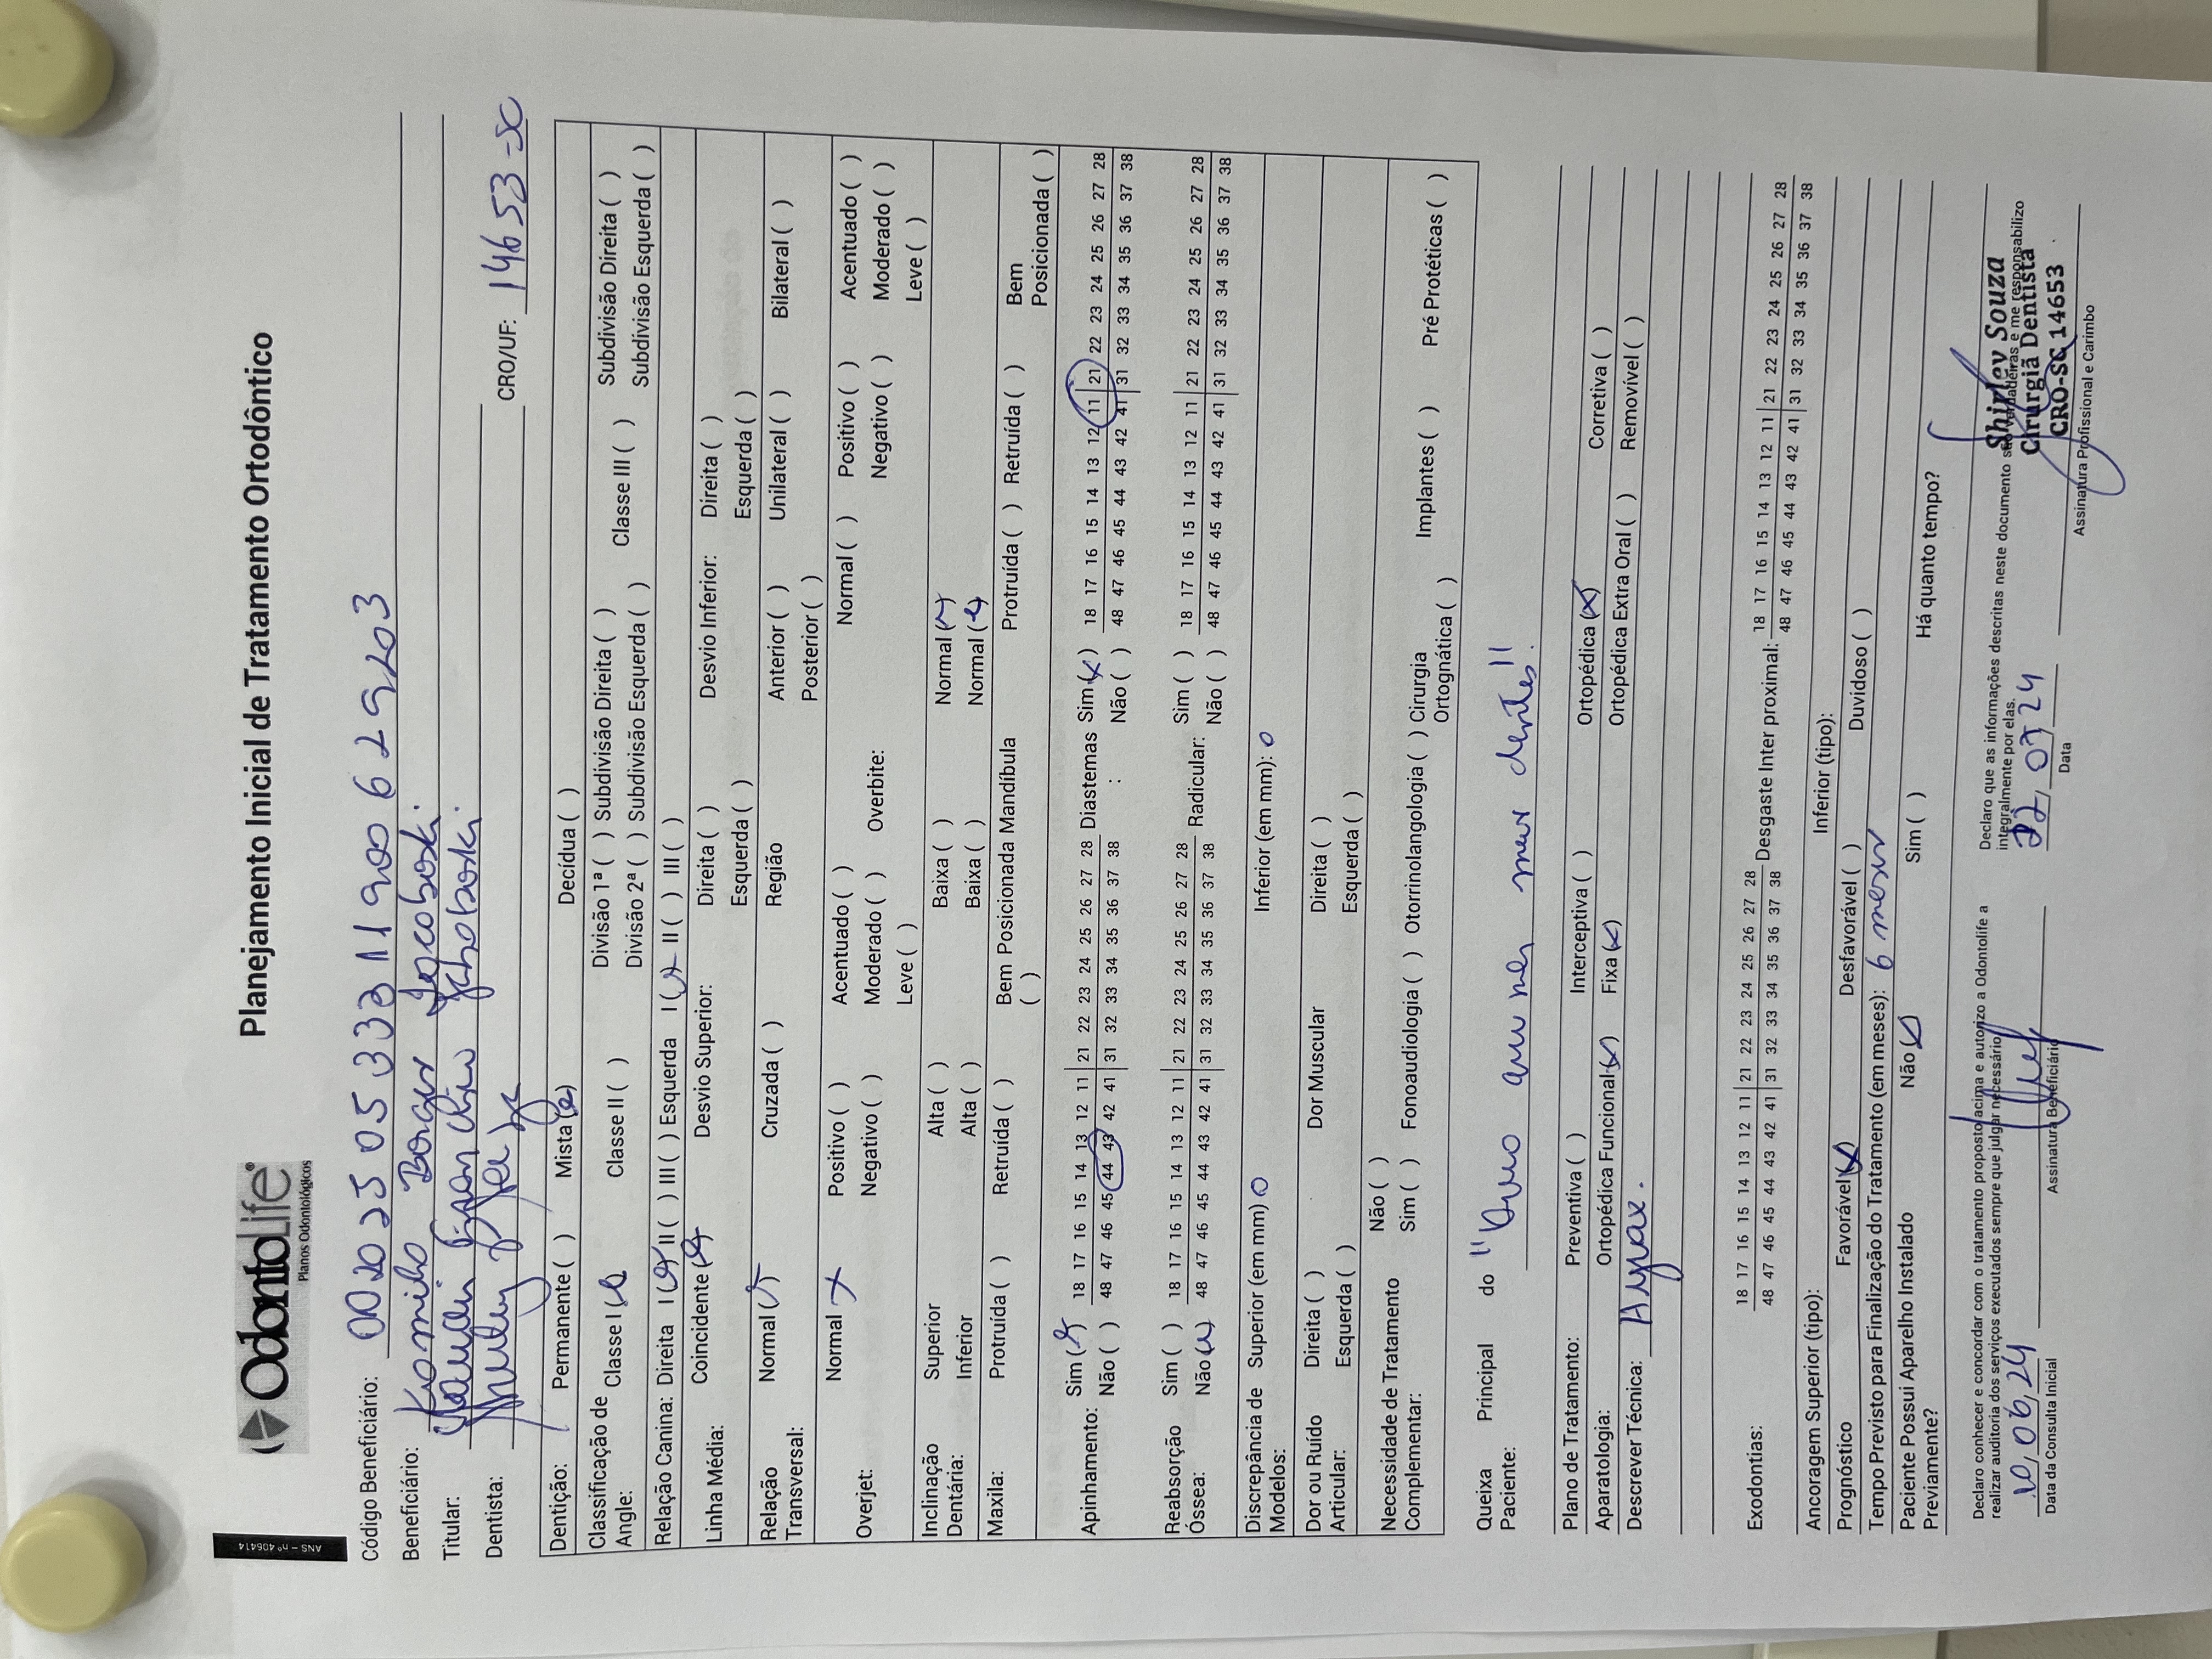 ANS - nº 406414
OdontoLife
Planos Odontológicos
Planejamento Inicial de Tratamento Ortodôntico
Código Beneficiário:
Beneficiário: Borges Jacoboski
Titular:
Dentista: CRO/UF: 14653-SC
Dentição: Permanente ( ) Mista (x) Decídua ( )
Classificação de Angle: Classe I (x) Classe II ( ) Divisão 1ª ( ) Subdivisão Direita ( ) Classe III ( ) Subdivisão Direita ( )
Divisão 2ª ( ) Subdivisão Esquerda ( ) Subdivisão Esquerda ( )
Relação Canina: Direita I (x) II ( ) III ( ) Esquerda I (x) II ( ) III ( )
Linha Média: Coincidente (x) Desvio Superior: Direita ( ) Desvio Inferior: Direita ( )
Esquerda ( ) Esquerda ( )
Relação Transversal: Normal (x) Cruzada ( ) Região Anterior ( ) Unilateral ( ) Bilateral ( )
Posterior ( )
Overjet: Normal x Positivo ( ) Acentuado ( ) Overbite: Normal ( ) Positivo ( ) Acentuado ( )
Negativo ( ) Moderado ( ) Negativo ( ) Moderado ( )
Leve ( ) Leve ( )
Inclinação Dentária: Superior Alta ( ) Baixa ( ) Normal (x)
Inferior Alta ( ) Baixa ( ) Normal (x)
Maxila: Protruída ( ) Retruída ( ) Bem Posicionada ( ) Mandíbula Protruída ( ) Retruída ( ) Bem Posicionada ( )
Apinhamento: Sim (x) 18 17 16 15 14 13 12 11 | 21 22 23 24 25 26 27 28 Diastemas : Sim (x) 18 17 16 15 14 13 12 11 | 21 22 23 24 25 26 27 28
Não ( ) 48 47 46 45 44 43 42 41 | 31 32 33 34 35 36 37 38 Não ( ) 48 47 46 45 44 43 42 41 | 31 32 33 34 35 36 37 38
Reabsorção Óssea: Sim ( ) 18 17 16 15 14 13 12 11 | 21 22 23 24 25 26 27 28 Radicular: Sim ( ) 18 17 16 15 14 13 12 11 | 21 22 23 24 25 26 27 28
Não (x) 48 47 46 45 44 43 42 41 | 31 32 33 34 35 36 37 38 Não ( ) 48 47 46 45 44 43 42 41 | 31 32 33 34 35 36 37 38
Discrepância de Modelos: Superior (em mm) 0 Inferior (em mm): 0
Dor ou Ruído Articular: Direita ( ) Dor Muscular Direita ( )
Esquerda ( ) Esquerda ( )
Necessidade de Tratamento Complementar: Não ( )
Sim ( ) Fonoaudiologia ( ) Otorrinolangologia ( ) Cirurgia Ortognática ( ) Implantes ( ) Pré Protéticas ( )
Queixa Principal do Paciente: meus dentes"
Plano de Tratamento: Preventiva ( ) Interceptiva ( ) Ortopédica (x) Corretiva ( )
Aparatologia: Ortopédica Funcional (x) Fixa (x) Ortopédica Extra Oral ( ) Removível ( )
Descrever Técnica:
Exodontias: 18 17 16 15 14 13 12 11 | 21 22 23 24 25 26 27 28 Desgaste Inter proximal: 18 17 16 15 14 13 12 11 | 21 22 23 24 25 26 27 28
48 47 46 45 44 43 42 41 | 31 32 33 34 35 36 37 38 48 47 46 45 44 43 42 41 | 31 32 33 34 35 36 37 38
Ancoragem Superior (tipo): Inferior (tipo):
Prognóstico Favorável (x) Desfavorável ( ) Duvidoso ( )
Tempo Previsto para Finalização do Tratamento (em meses): 6 meses
Paciente Possui Aparelho Instalado Previamente? Não (x) Sim ( ) Há quanto tempo?
Declaro conhecer e concordar com o tratamento proposto acima e autorizo a Odontolife a
realizar auditoria dos serviços executados sempre que julgar necessário.
10, 06, 24
Data da Consulta Inicial
Assinatura Beneficiário
Declaro que as informações descritas neste documento são verdadeiras e me responsabilizo
integralmente por elas.
22, 07, 24
Data
Shirley Souza
Cirurgiã Dentista
CRO-SC 14653
Assinatura Profissional e Carimbo